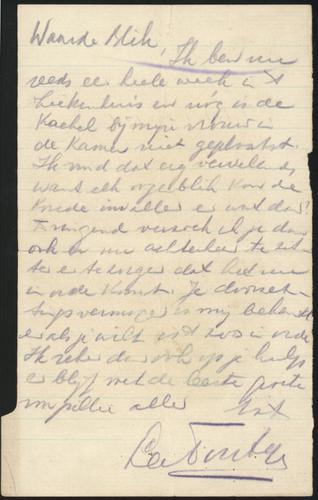 Waarde Blik,
Ik ben nu
reeds een heele week in 't
Ziekenhuis en nóg is de
Kachel bij mijn vrouw in
de Kamer niet geplaatst.
Ik vind dat erg vervelend
want elk oogenblik kan de
Koude invallen en wat dan?
Dringend verzoek ik je dan
ook er nu achterheen te zit-
ten en te zorgen dat het nu
in orde komt. Je doorzet-
tingsvermogen is mij bekend
en als je wilt is 't zoo in orde
Ik reken dan ook op je hulp
en blijf met de beste groeten
van jullie aller